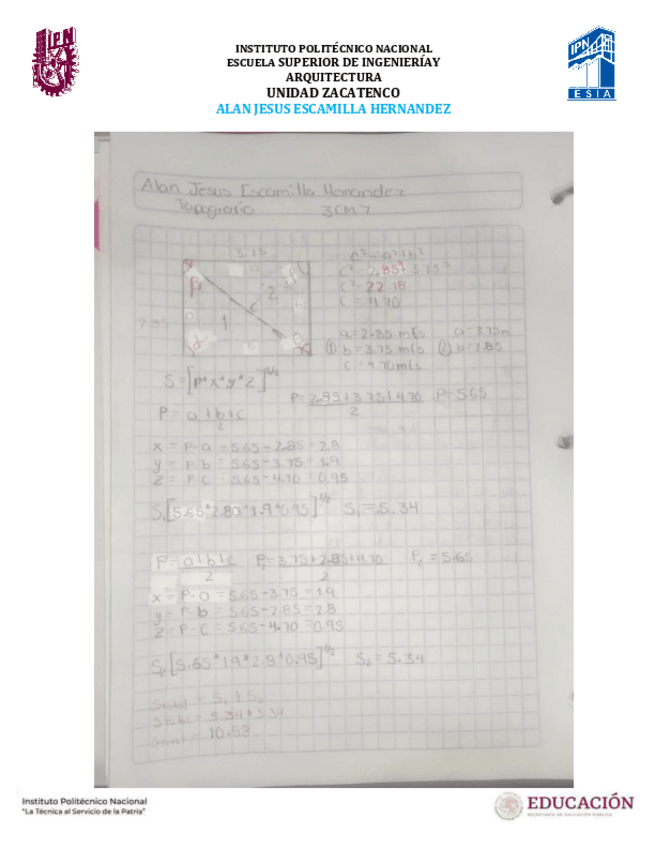 INSTITUTO POLITÉCNICO NACIONAL
ESCUELA SUPERIOR DE INGENIERÍAY
ARQUITECTURA
UNIDAD ZACATENCO
ALAN JESUS ESCAMILLA HERNANDEZ
IPN
IPN
ESIA
Alan Jesus Escamilla Hernandez
Topografia 3CM7
3.75
c²=a²+b²
c²=2.85²+3.75²
c²=22.18
c=4.70
2.85
1
2
a=2.85 mts a=3.75m
① b=3.75 mts ② b=2.85
c=4.70mts
S=[P*x*y*z]^1/2
P=a+b+c/2 P=2.85+3.75+4.70/2 P=5.65
x=P-a=5.65-2.85=2.8
y=P-b=5.65-3.75=1.9
z=P-c=5.65-4.70=0.95
S₁[5.65*2.80*1.9*0.95]^1/2 S₁=5.34
P=a+b+c/2 P₂=3.75+2.85+4.70/2 P₂=5.65
x=P-a=5.65-3.75=1.9
y=P-b=5.65-2.85=2.8
z=P-c=5.65-4.70=0.95
S₂[5.65*1.9*2.8*0.95]^1/2 S₂=5.34
Stotal=S₁+S₂
Stotal=5.34+5.34
Stotal=10.68
Instituto Politécnico Nacional
"La Técnica al Servicio de la Patria"
EDUCACIÓN
SECRETARÍA DE EDUCACIÓN PÚBLICA